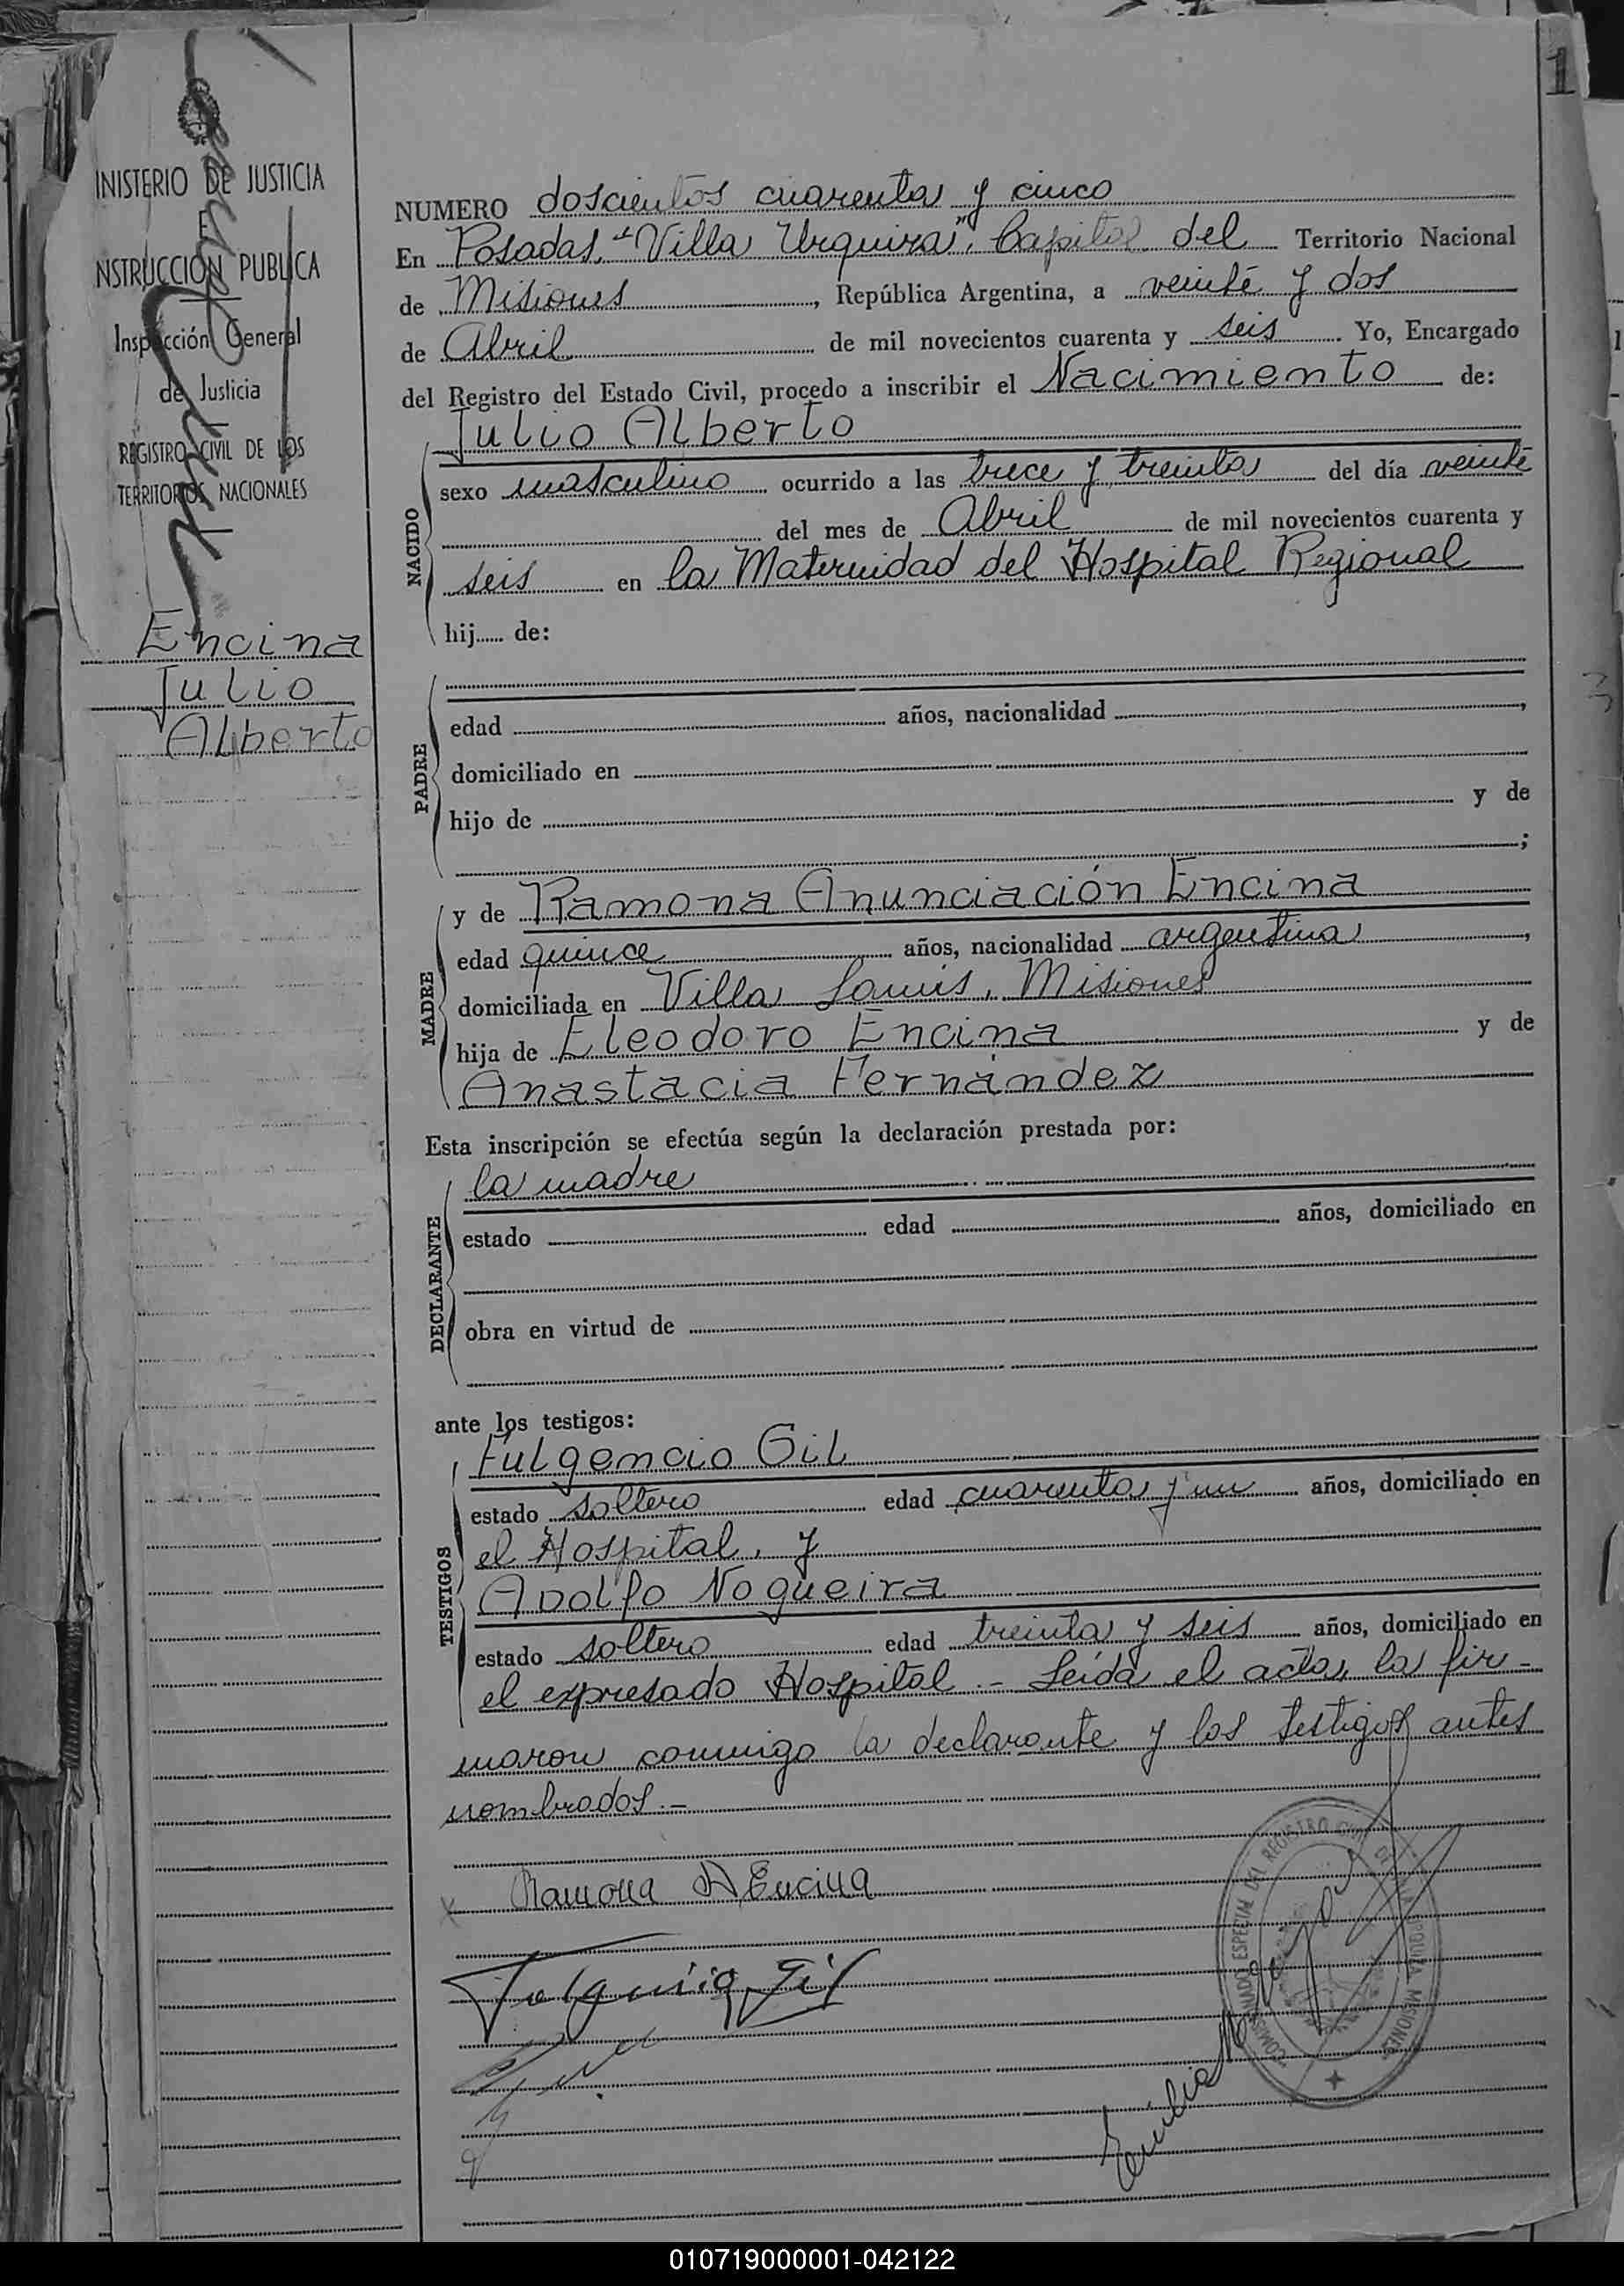 1
INISTERIO DE JUSTICIA
E
NSTRUCCIÓN PUBLICA
Inspección General
de Justicia
REGISTRO CIVIL DE LOS
TERRITORIOS NACIONALES
Encina
Julio
Alberto
NUMERO doscientos cuarenta y cinco
En Posadas, "Villa Urquiza", Capital del Territorio Nacional
de Misiones, República Argentina, a veinte y dos
de Abril de mil novecientos cuarenta y seis Yo, Encargado
del Registro del Estado Civil, procedo a inscribir el Nacimiento de:
Julio Alberto
NACIDO
sexo masculino ocurrido a las trece y treinta del día veinte
del mes de Abril de mil novecientos cuarenta y
seis en la Maternidad del Hospital Regional
hij...... de:
PADRE
edad años, nacionalidad ,
domiciliado en
hijo de y de
;
MADRE
y de Ramona Anunciación Encina
edad quince años, nacionalidad argentina,
domiciliada en Villa Lanús, Misiones
hija de Eleodoro Encina y de
Anastacia Fernández
Esta inscripción se efectúa según la declaración prestada por:
DECLARANTE
la madre
estado edad años, domiciliado en
obra en virtud de
ante los testigos:
TESTIGOS
Fulgencio Gil
estado soltero edad cuarenta y un años, domiciliado en
el Hospital, y
Adolfo Nogueira
estado soltero edad treinta y seis años, domiciliado en
el expresado Hospital.- Leída el acta, la fir-
maron conmigo la declarante y los testigos antes
nombrados.-
x Ramona A Encina
Fulgencio Gil
COMISIONADO ESPECIAL DEL REGISTRO CIVIL URQUIZA MISIONES
010719000001-042122